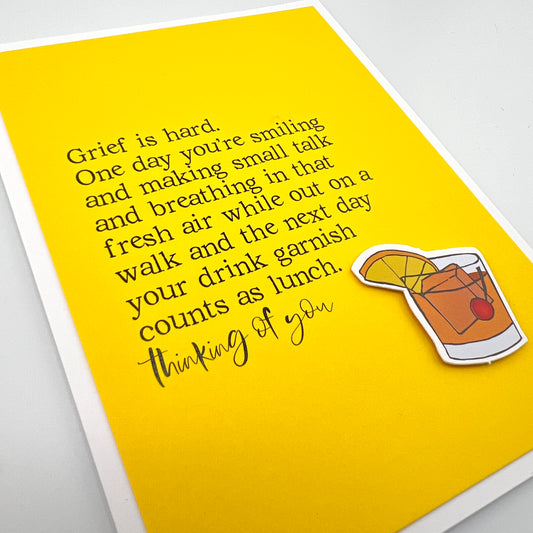 Grief is hard.
One day you're smiling
and making small talk
and breathing in that
fresh air while out on a
walk and the next day
your drink garnish
counts as lunch.
thinking of you